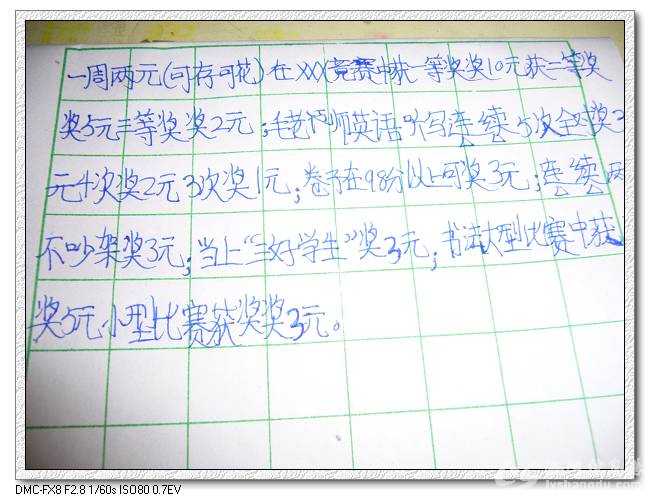 一周两元(可存可花)在XXX竞赛中获一等奖奖10元获二等奖
奖5元三等奖奖2元;毛老师英语听写连续5次全对奖2
元4次奖2元3次奖1元;卷子在98分以上可奖3元;连续两
不吵架奖3元;当上"三好学生"奖3元;书法大型比赛中获
奖5元小型比赛获奖奖3元。
DMC-FX8 F2.8 1/60s ISO80 0.7EV